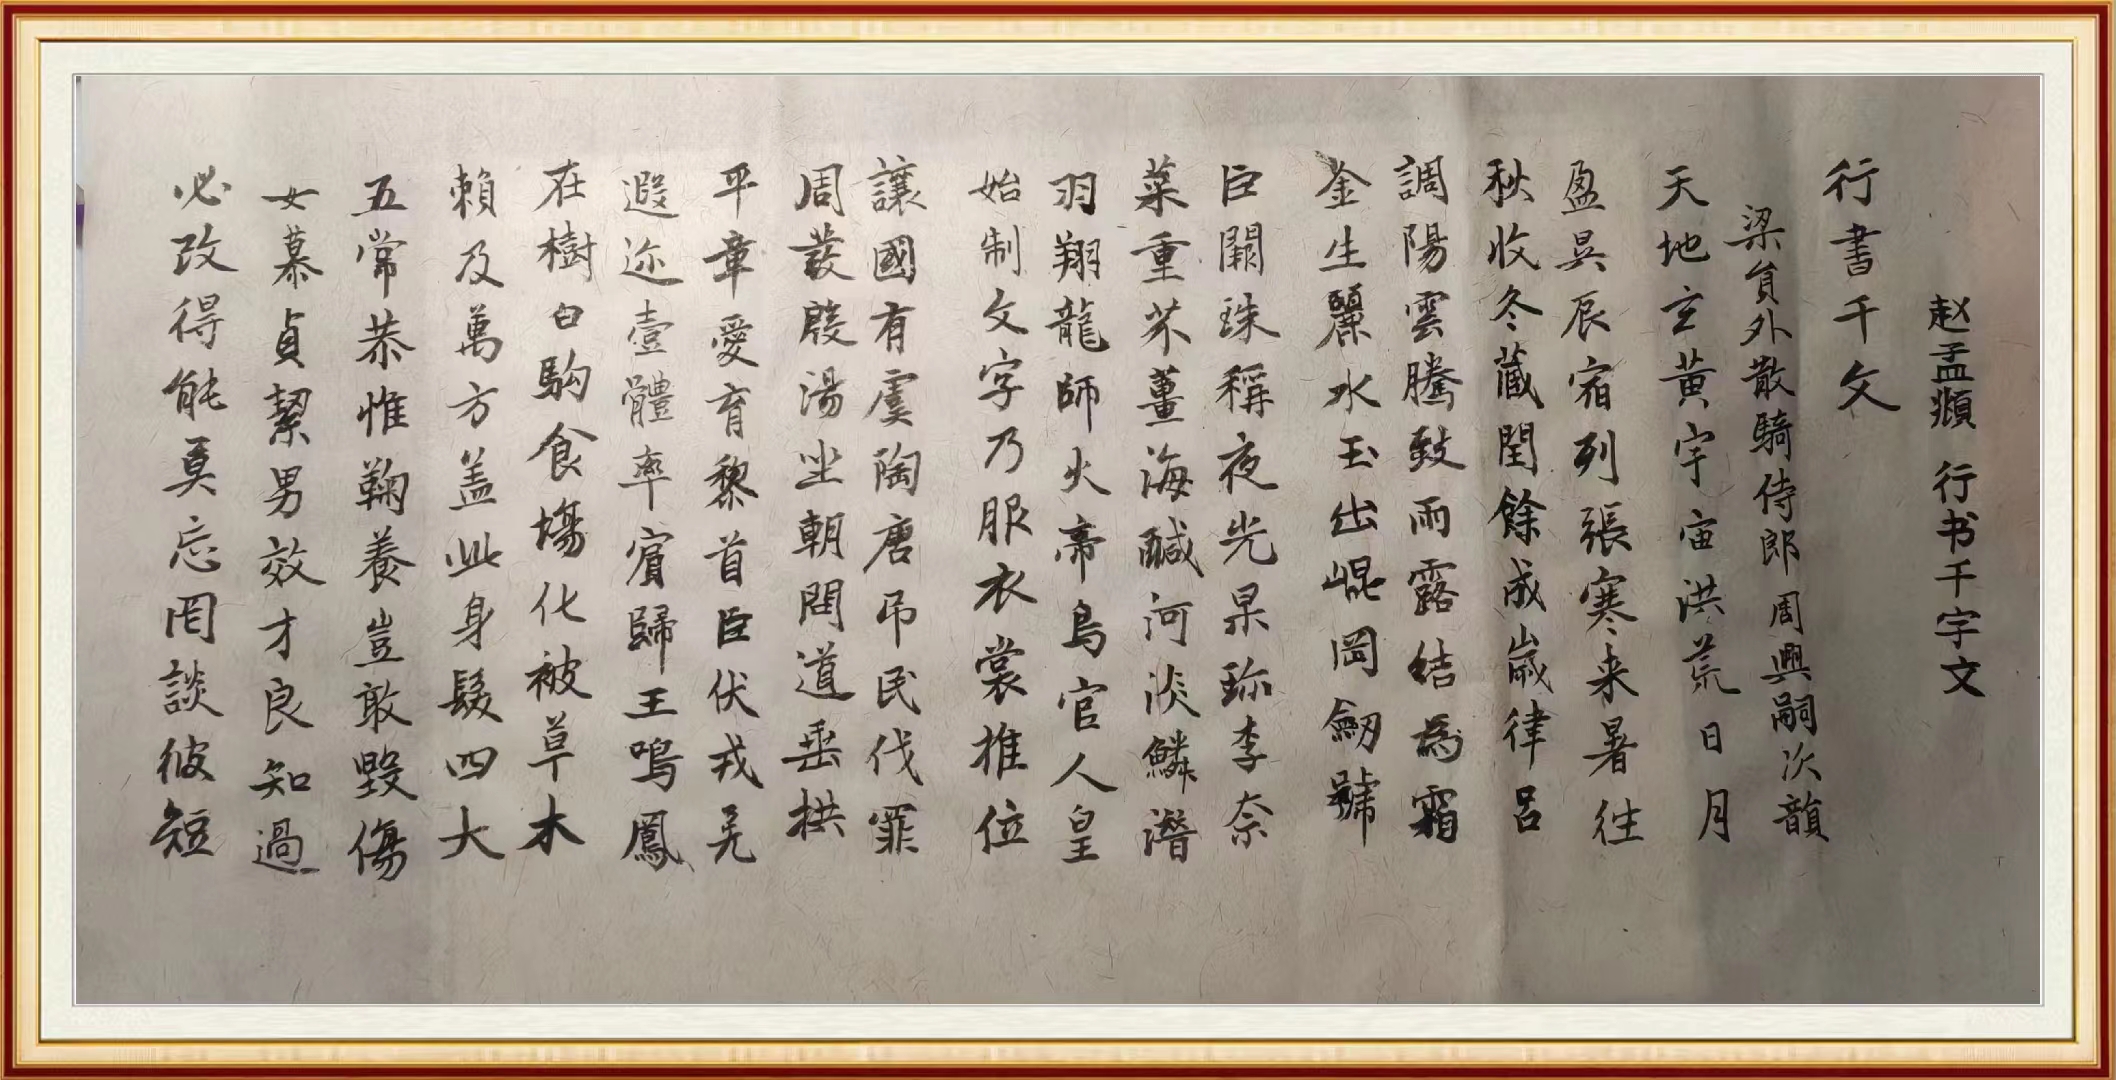 赵孟頫 行书千字文
行書千文
梁貟外散騎侍郎周興嗣次韻
天地玄黄宇宙洪荒日月
盈昃辰宿列張寒来暑往
秋收冬藏閏餘成歲律吕
調陽雲騰致雨露結為霜
金生麗水玉出崐岡劒號
巨闕珠稱夜光果珎李奈
菜重芥薑海鹹河淡鱗潛
羽翔龍師火帝鳥官人皇
始制文字乃服衣裳推位
讓國有虞陶唐吊民伐罪
周發殷湯坐朝問道垂拱
平章愛育黎首臣伏戎羌
遐迩壹體率賓歸王鳴鳳
在樹白駒食場化被草木
賴及萬方盖此身髮四大
五常恭惟鞠養豈敢毀傷
女慕貞絜男效才良知過
必改得能莫忘罔談彼短